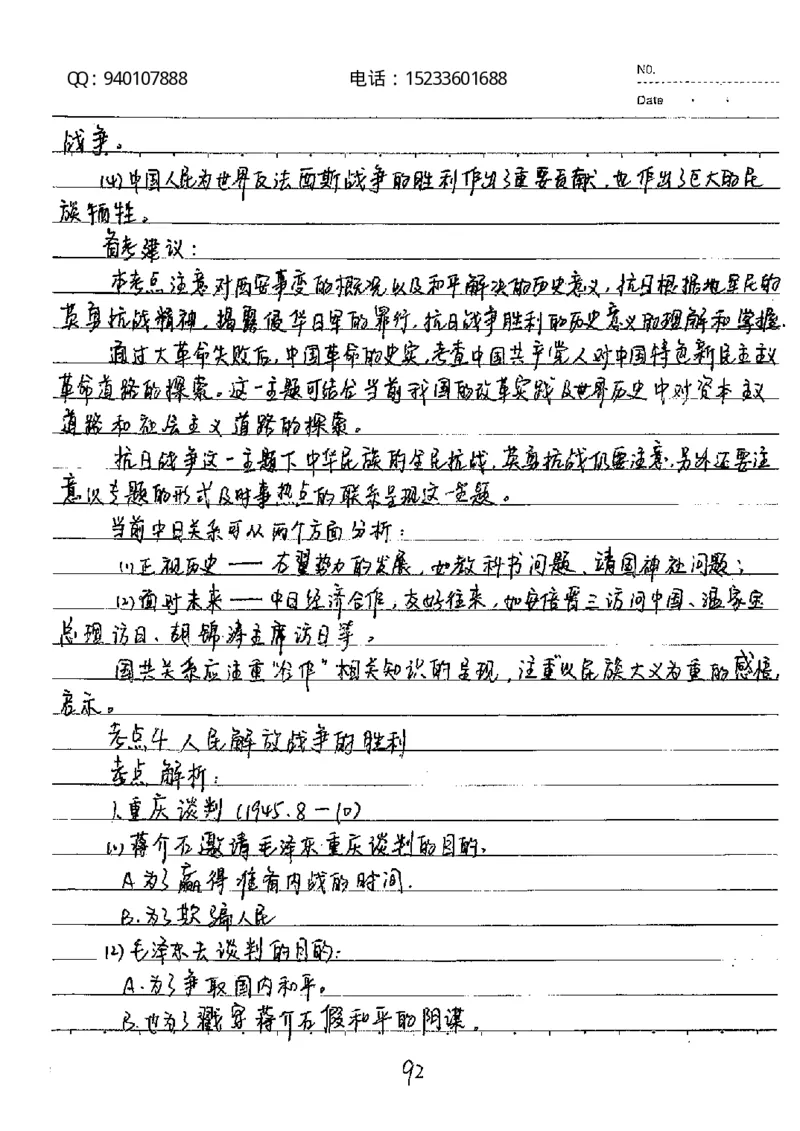 QQ：940107888 电话：15233601688 NO.
Date
战争。
(4)中国人民为世界反法西斯战争的胜利作出了重要贡献，也作出了巨大的民
族牺牲。
备考建议：
本考点注意对西安事变的概况以及和平解决的历史意义，抗日根据地军民的
英勇抗战精神，揭露侵华日军的罪行，抗日战争胜利的历史意义的理解和掌握.
通过大革命失败后，中国革命的史实，考查中国共产党人对中国特色新民主主义
革命道路的探索。这一主题可结合当前我国的改革实践及世界历史中对资本主义
道路和社会主义道路的探索。
抗日战争这一主题下中华民族的全民抗战，英勇抗战仍要注意，另外还要注
意以专题的形式及时事热点的联系呈现这一主题。
当前中日关系可从两个方面分析：
(1)正视历史——右翼势力的发展，如教科书问题、靖国神社问题；
(2)面对未来——中日经济合作，友好往来，如安倍晋三访问中国、温家宝
总理访日、胡锦涛主席访日等。
国共关系应注重“合作”相关知识的呈现，注重“以民族大义为重的感悟，
启示。
考点4 人民解放战争的胜利
考点解析：
1.重庆谈判（1945.8—10）
(1)蒋介石邀请毛泽东重庆谈判的目的。
A 为了赢得准备内战的时间.
B.为了欺骗人民
(2)毛泽东去谈判的目的：
A.为了争取国内和平。
B.也为了戳穿蒋介石假和平的阴谋。
92